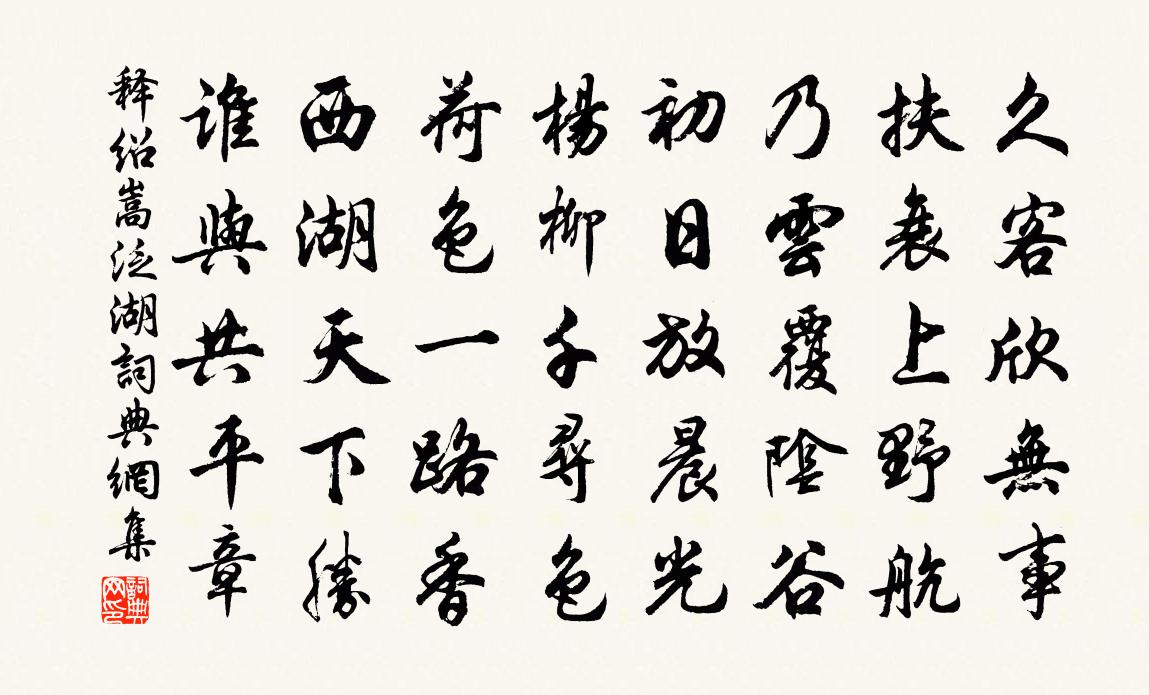 久客欣無事
扶衰上野航
乃雲覆陰谷
初日放晨光
楊柳千尋色
荷色一路香
西湖天下勝
誰與共平章
释绍嵩泛湖詞典網集
詞典网印